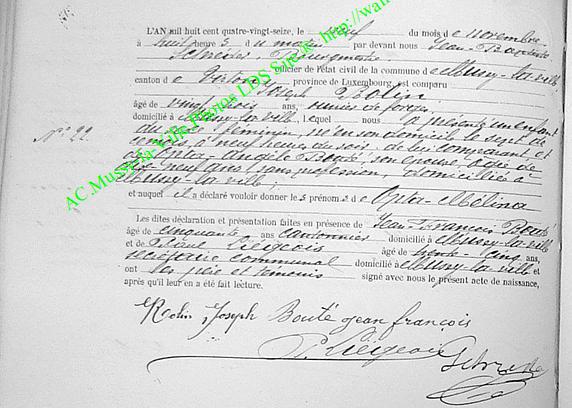 L'AN mil huit cent quatre-vingt-seize, le neuf du mois de novembre
à huit heures du matin par devant nous Jean-Baptiste
officier de l'état civil de la commune de Mussy-la-ville,
canton de Virton, province de Luxembourg, est comparu
Joseph Rolin
âgé de vingt trois ans, ouvrier de forges,
domicilié à Mussy-la-ville, lequel nous a présenté un enfant
du sexe féminin, né en son domicile le sept de
ce mois à neuf heures du soir, de lui comparant et
de Opta-Angèle Bouté, son épouse, âgée de
neuf ans, sans profession, domiciliée à
Mussy-la-ville,
et auquel il a déclaré vouloir donner les prénoms de Opta-Mélina
Les dites déclaration et présentation faites en présence de Jean-François Bouté
âgé de cinquante ans cantonnier domicilié à Mussy-la-ville
et de Liégeois âgé de trente-cinq ans,
secrétaire communal domicilié à Mussy-la-ville et
ont les père et témoins signé avec nous le présent acte de naissance,
après qu'il leur en a été fait lecture.
N° 22
Rolin Joseph Bouté jean françois
Liégeois
AC.Mussy-la-Ville Photos LDS Site © http://wal